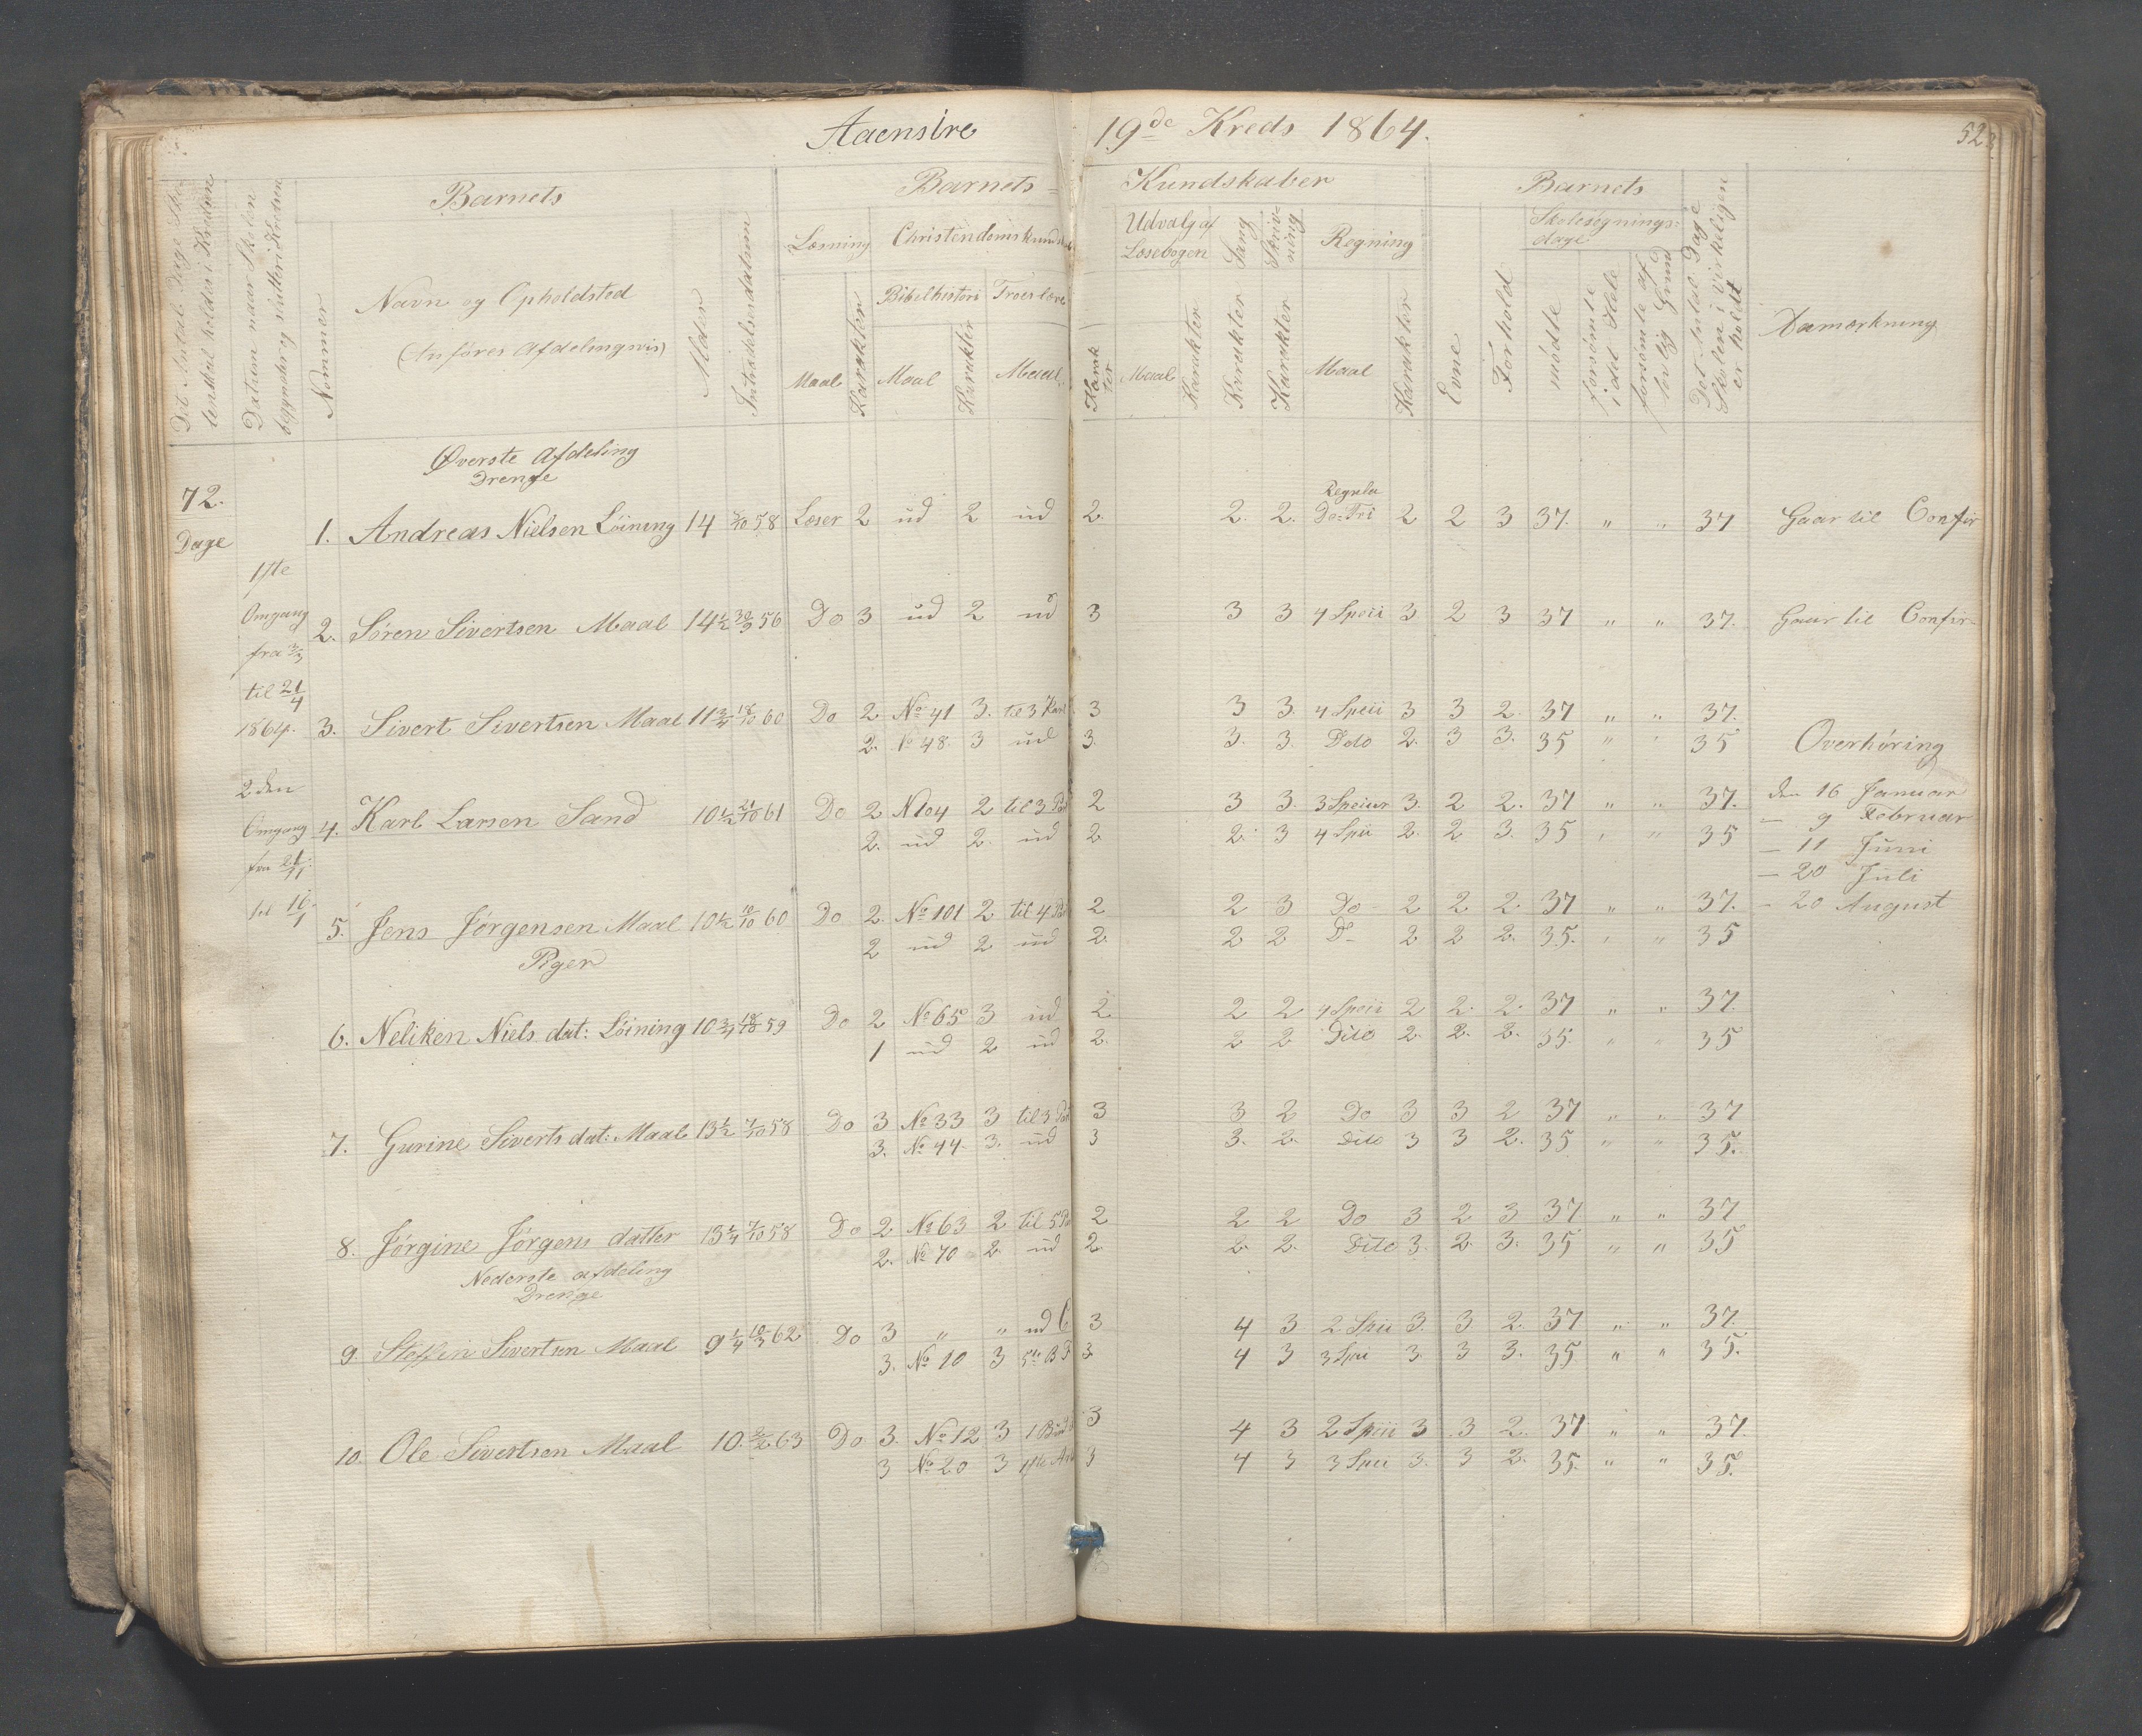 Aaensire 19de Kreds 1864. 52
Barnets Barnets Kundskaber Barnets
Nummer Navn og Opholdsted Alder Læsning Christendomskundsk Udvalg af Læsebogen Sang Skrivning Regning Evne Forhold Skolesøgningsdage Anmærkning
(Anføres Afdelingsvis) Bibelhistori Troeslære mødte forsømte i det Hele
Maal Karakter Maal Karakter Maal Karakter Maal Karakter Karakter Karakter Maal Karakter
Øverste Afdeling
Drenge
72. Regula
Dage 1. Andreas Nielsen Løining 14 8/10 58 Læser 2 ud 2 ud 2. 2. 2. De Tri 2 2 3 37. " " 37 Gaar til Confir
1ste
Omgang 2. Søren Sivertsen Maal 14½ 30/9 56 Do 3 ud 2 ud 3 3 3 4 Speii 3 2 3 37 " " 37. Gaar til Confir
fra 3/3
til 21/4
1864. 3. Sivert Sivertsen Maal 11¾ 18/10 60 Do 2 No 41 3. til 3 3 3 3. 4 Speii 3 3 2. 37 " " 37.
2. No 48. 3 ud 3. 3. 3. Doto 2. 3 3. 35 " " 35 Overhøring
2den den 16 Januar
Omgang 4. Karl Larsen Sand 10½ 21/10 61 Do 2 No 4 2 til 3 2 3 3. 3 Speier 3. 2 2. 37 " " 37. — 9 Februar
fra 21/11 2. ud 2. ud 2. 2. 3 4 Spii 2. 2 3. 35 " " 35 — 11 Juni
— 20 Juli
til 16/1 5. Jens Jørgensen Maal 10½ 10/10 60 Do 2. No 101 2 til 4 2 2 3 Do 2 2 2. 37 " " 37. — 20 August
2 ud 2 ud 2. 2 2 D- 2 2 2. 35. " " 35
Piger
6. Neliken Niels dat: Løining 10¾ 18/10 59 Do 2 No 65 3 ud 2 2 2 4 Speii 2 2. 2. 37 " " 37.
1 ud 2 ud 2. 2 2 Dito 2. 2. 2. 35. " " 35
7. Gurine Siverts dat: Maal 13½ 7/10 58 Do 3 No 33 3 til 3 3 3 2 Do 3 3 2 37 " " 37
3. No 44. 3. ud 3 3. 2. Dito 3 3 2. 35 " " 35.
8. Jørgine Jørgens datter 13¼ 7/10 58 Do 2 No 63 2 til 5 2 2 2 Do 3 2 3 37 " " 37
2. No 70 2. ud 2. 2. 2. Dito 3. 2. 3. 35 " " 35
Nederste afdeling
Drenge
9. Steffin Sivertsen Maal 9¼ 10/3 62 Do 3 " " ud 3 4 3 2 Speii 3. 3 2. 37 " " 37.
3. No 10 3 5te B 3 4 3 3 Spii 3. 3 3. 35 " " 35.
10. Ole Sivertsen Maal 10. 63 Do 3. No 12 3 1 Bud 3 4 3 2 Speii 3 3 2. 37 " " 37.
3 No 20 3 1ste Art 3 4 3 3 Speii 3. 3 2. 35. " " 35.